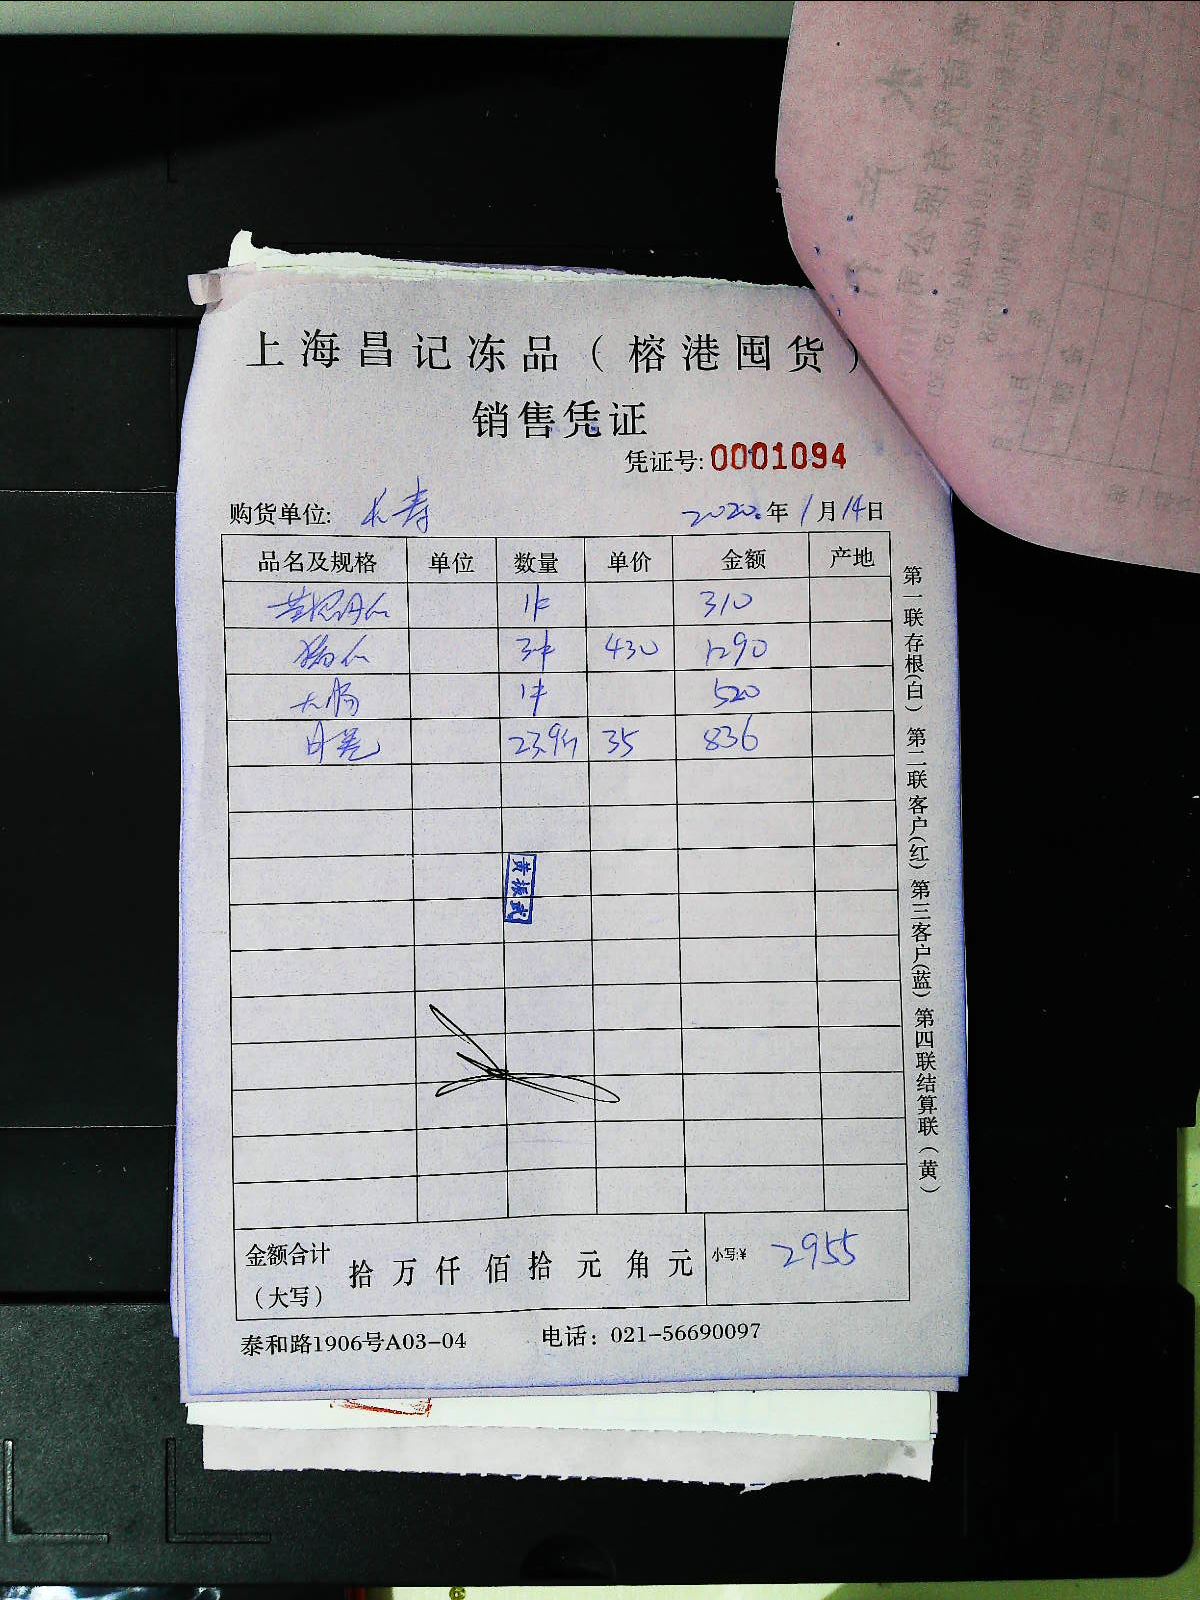 上海昌记冻品（榕港囤货）
销售凭证
凭证号: 0001094
购货单位: 长寿 2020.年1月14日
品名及规格 单位 数量 单价 金额 产地
1件 310
3件 430 1290
大肠 1件 520
23.9斤 35 836
黄振武
金额合计（大写） 拾 万 仟 佰 拾 元 角 元 小写:¥ 2955
泰和路1906号A03-04 电话：021-56690097
第一联存根(白) 第二联客户(红) 第三客户(蓝) 第四联结算联(黄)